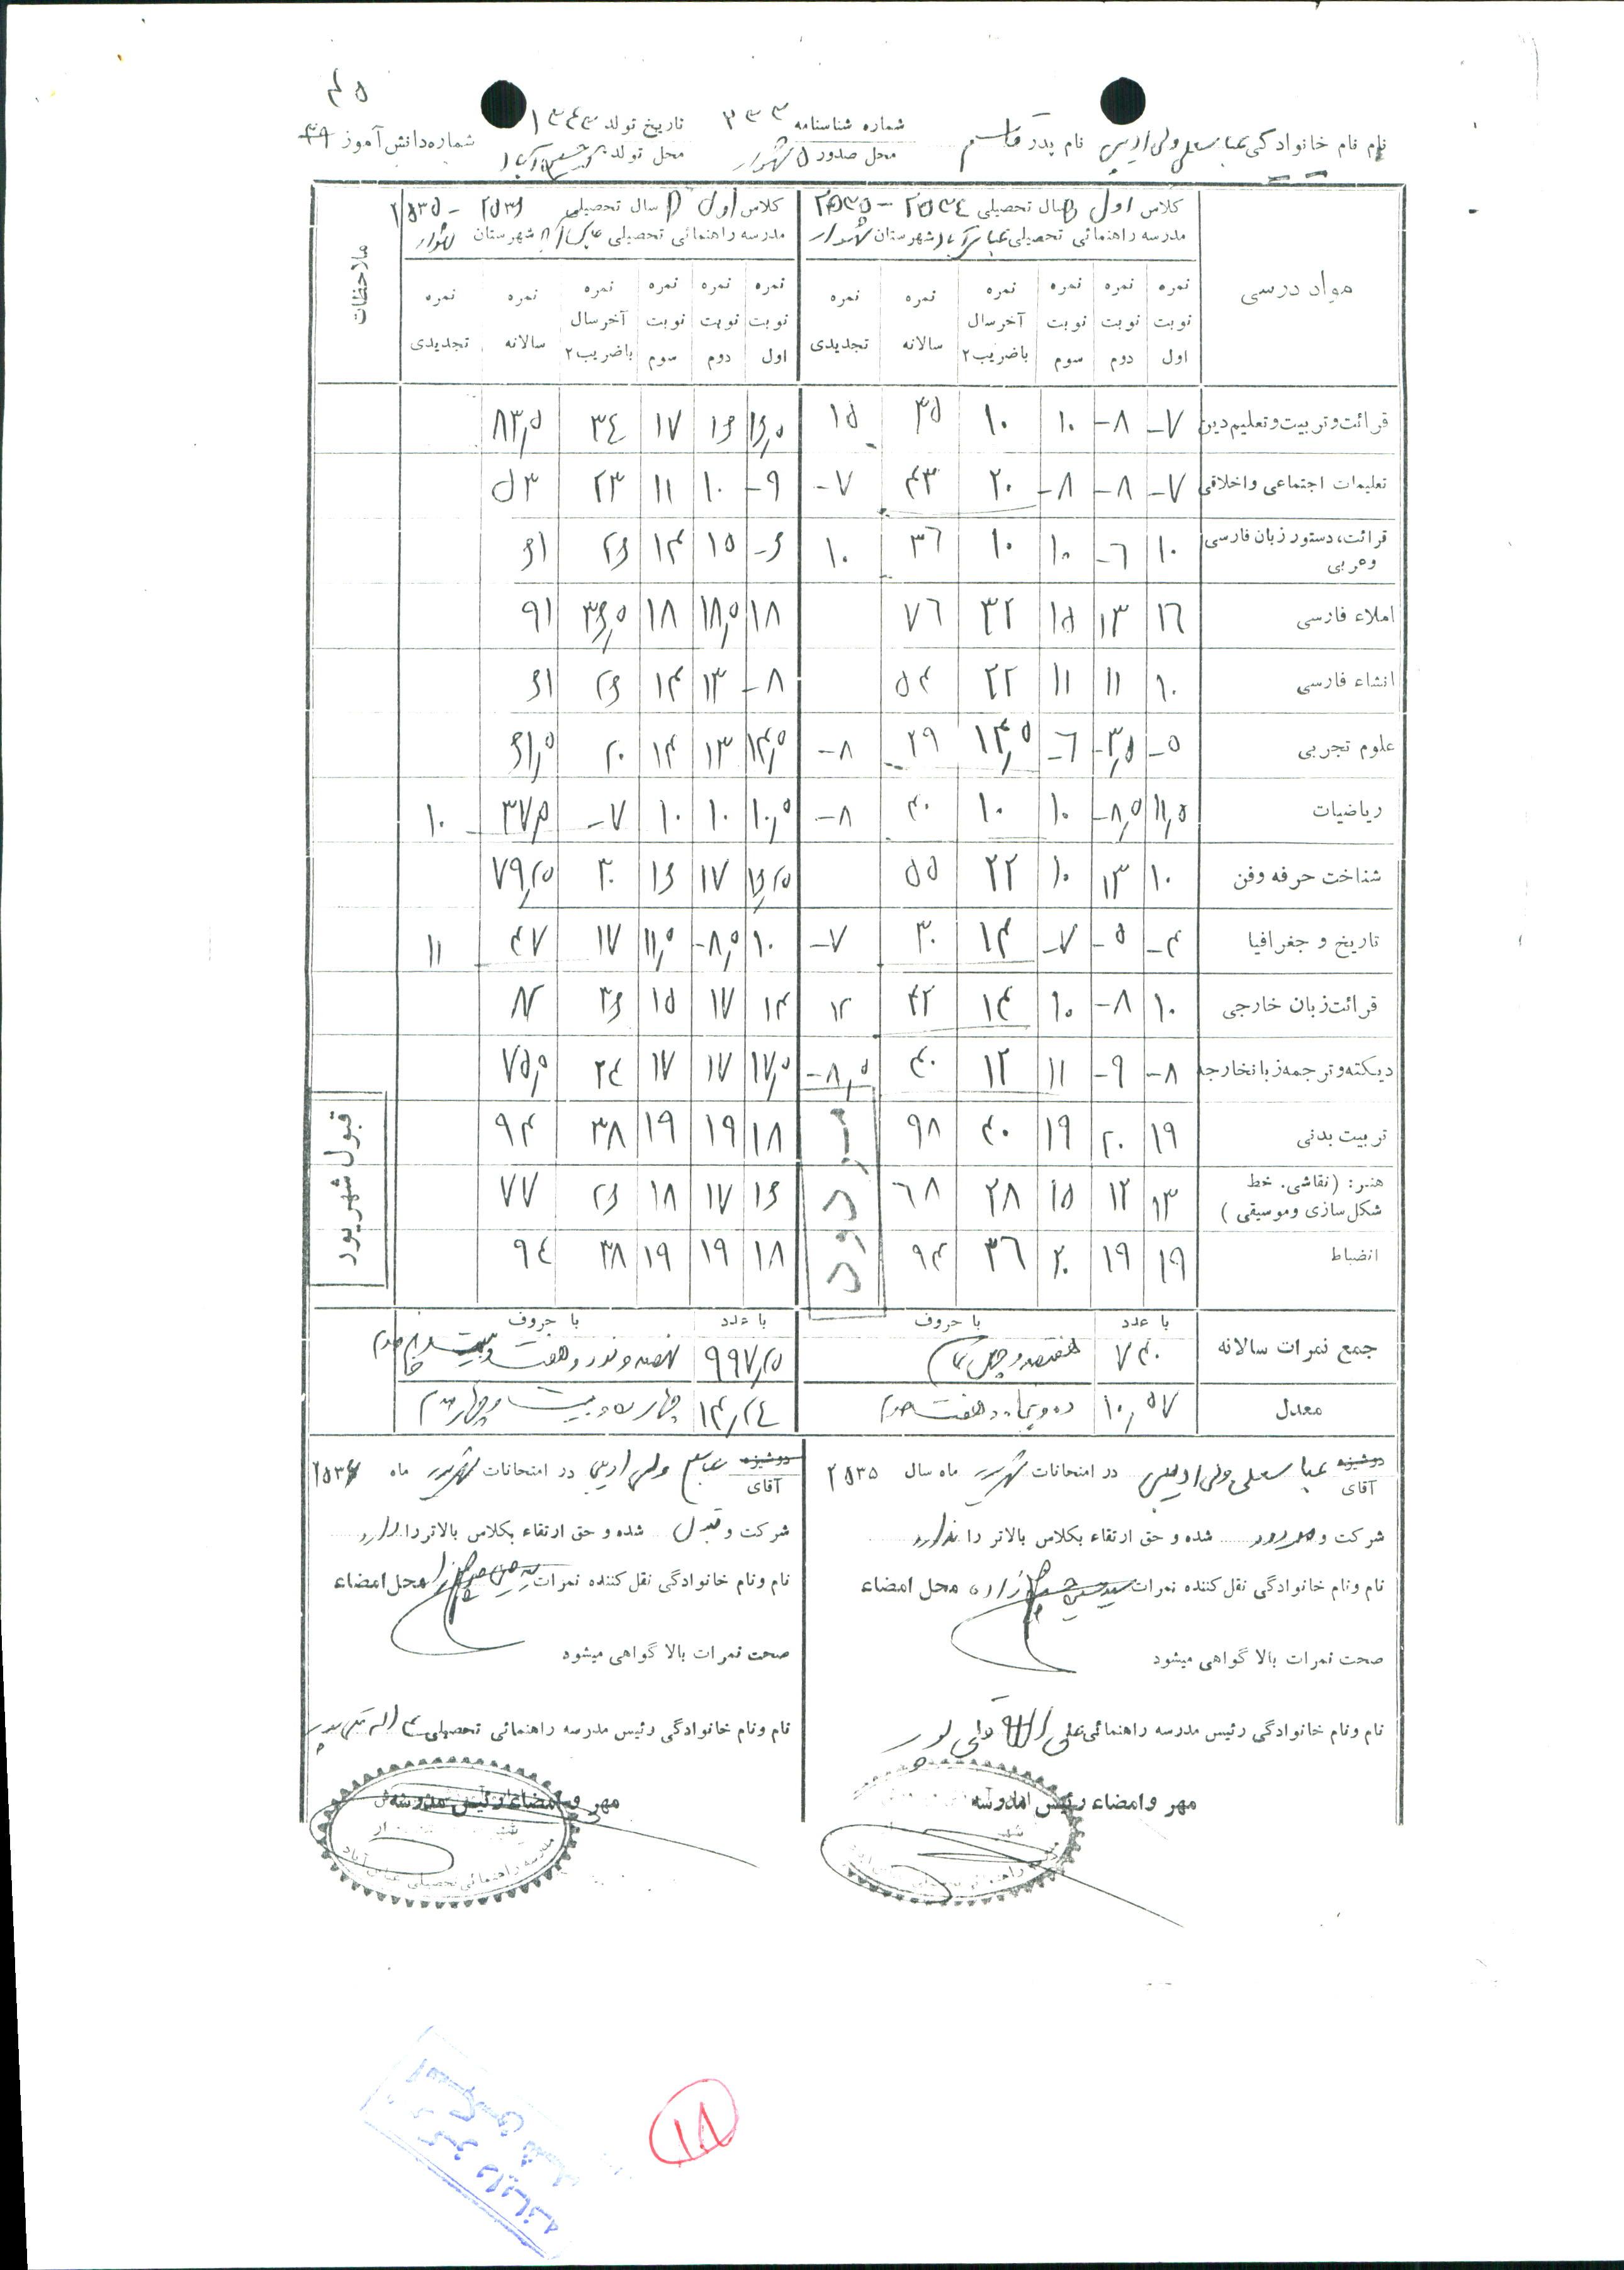 ۴۵
نام نام خانوادگی عباسعلی ولی ادیبی نام پدر قاسم شماره شناسنامه ۳۳۳ تاریخ تولد ۱۳۴۳
محل صدور محل تولد حسین آباد شماره دانش آموز ۳۹
کلاس اول سال تحصیلی ۲۵۳۴ - ۲۵۳۵ کلاس اول سال تحصیلی ۲۵۳۶ - ۲۵۳۵
مدرسه راهنمائی تحصیلی عباس آباد شهرستان مدرسه راهنمائی تحصیلی شهرستان
مواد درسی نمره نوبت اول نمره نوبت دوم نمره نوبت سوم نمره آخر سال باضریب ۲ نمره سالانه نمره تجدیدی نمره نوبت اول نمره نوبت دوم نمره نوبت سوم نمره آخر سال باضریب ۲ نمره سالانه نمره تجدیدی ملاحظات
قرائت و تربیت و تعلیم دین ۷- ۸- ۱۰ ۱۰ ۳۵ ۱۵ ۱۶,۵ ۱۶ ۱۷ ۳۴ ۸۳,۵
تعلیمات اجتماعی و اخلاقی ۷- ۸- ۸- ۲۰ ۴۳ ۷- ۹- ۱۰ ۱۱ ۲۳ ۵۳
قرائت، دستور زبان فارسی وعربی ۱۰ ۶- ۱۰ ۱۰ ۳۶ ۱۰ ۶- ۱۵ ۱۴ ۲۶ ۶۱
املاء فارسی ۱۶ ۱۳ ۱۵ ۳۲ ۷۶ ۱۸ ۱۸,۵ ۱۸ ۳۶,۵ ۹۱
انشاء فارسی ۱۰ ۱۱ ۱۱ ۲۲ ۵۴ ۸- ۱۳ ۱۴ ۲۶ ۶۱
علوم تجربی ۵- ۳,۵- ۶- ۱۴,۵ ۲۹ ۸- ۱۴,۵ ۱۳ ۱۴ ۲۰ ۶۱,۵
ریاضیات ۱۱,۵ ۸,۵- ۱۰ ۱۰ ۴۰ ۸- ۱۰,۵ ۱۰ ۱۰ ۷- ۳۷,۵ ۱۰
شناخت حرفه وفن ۱۰ ۱۳ ۱۰ ۲۲ ۵۵ ۱۶,۲۵ ۱۷ ۱۶ ۳۰ ۷۹,۲۵
تاریخ و جغرافیا ۴- ۵- ۷- ۱۴ ۳۰ ۷- ۱۰ ۸,۵- ۱۱,۵ ۱۷ ۴۷ ۱۱
قرائت زبان خارجی ۱۰ ۸- ۱۰ ۱۴ ۴۲ ۱۲ ۱۴ ۱۷ ۱۵ ۳۶ ۸۲
دیکته و ترجمه زبانخارجه ۸- ۹- ۱۱ ۱۲ ۴۰ ۸,۵- ۱۷,۵ ۱۷ ۱۷ ۲۴ ۷۵,۵
تربیت بدنی ۱۹ ۲۰ ۱۹ ۴۰ ۹۸ ۱۸ ۱۹ ۱۹ ۳۸ ۹۴
هنر: (نقاشی. خط شکل سازی وموسیقی) ۱۳ ۱۲ ۱۵ ۲۸ ۶۸ ۱۶ ۱۷ ۱۸ ۲۶ ۷۷
انضباط ۱۹ ۱۹ ۲۰ ۳۶ ۹۴ ۱۸ ۱۹ ۱۹ ۳۸ ۹۴
مردود
قبول شهریور
با عدد با حروف با عدد با حروف
جمع نمرات سالانه ۷۴۰ هفتصد و چهل تمام ۹۹۷,۲۵ نهصد و نود و هفت و بیست و پنج صدم
معدل ۱۰,۵۷ ده و پنجاه و هفت صدم ۱۴,۲۴ چهارده و بیست و چهار صدم
دوشیزه آقای عباسعلی ولی ادیبی در امتحانات شهریور ماه سال ۲۵۳۵
شرکت و مردود شده و حق ارتقاء بکلاس بالاتر را ندارد
نام ونام خانوادگی نقل کننده نمرات محل امضاء
صحت نمرات بالا گواهی میشود
نام ونام خانوادگی رئیس مدرسه راهنمائی
مهر وامضاء رئیس مدرسه
دوشیزه آقای ولی ادیبی در امتحانات شهریور ماه ۲۵۳۶
شرکت و قبول شده و حق ارتقاء بکلاس بالاتر را دارد
نام ونام خانوادگی نقل کننده نمرات محل امضاء
صحت نمرات بالا گواهی میشود
نام ونام خانوادگی رئیس مدرسه راهنمائی تحصیلی
مهر وامضاء رئیس مدرسه
مدرسه راهنمائی تحصیلی عباس آباد
۱۸